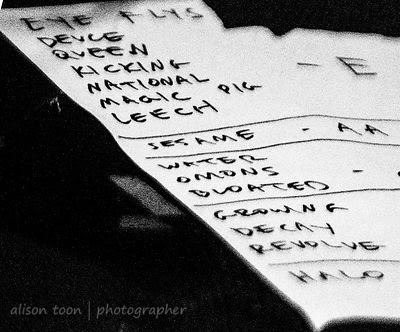 EYE FLYS - E
DEUCE
QUEEN
KICKING
NATIONAL
MAGIC PIG
LEECH
SESAME - AA
WATER
OMONS -
BLOATED
GROWING
DECAY
REVOLVE
HALO
alison toon | photographer